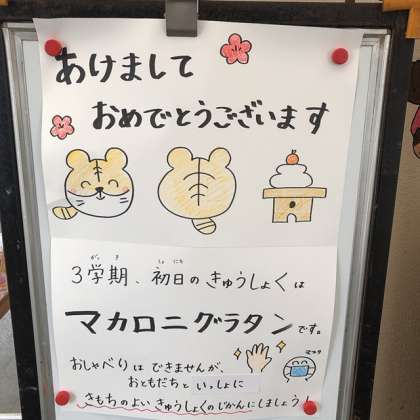 あけまして
おめでとうございます
がっき しょにち
3学期、初日のきゅうしょくは
マカロニグラタンです。
おしゃべりはできませんが、
おともだちといっしょに
きもちのよいきゅうしょくのじかんにしましょう！